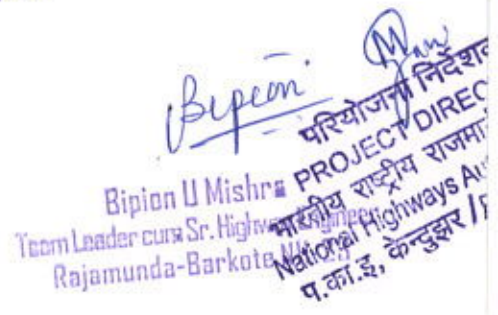 Bipion
Bipion U Mishra
Team Leader cum Sr. Highway Engineer
Rajamunda-Barkote
परियोजना निदेशक
PROJECT DIREC
भारतीय राष्ट्रीय राजमा
National Highways Au
प.का.इ, केन्दुझर /